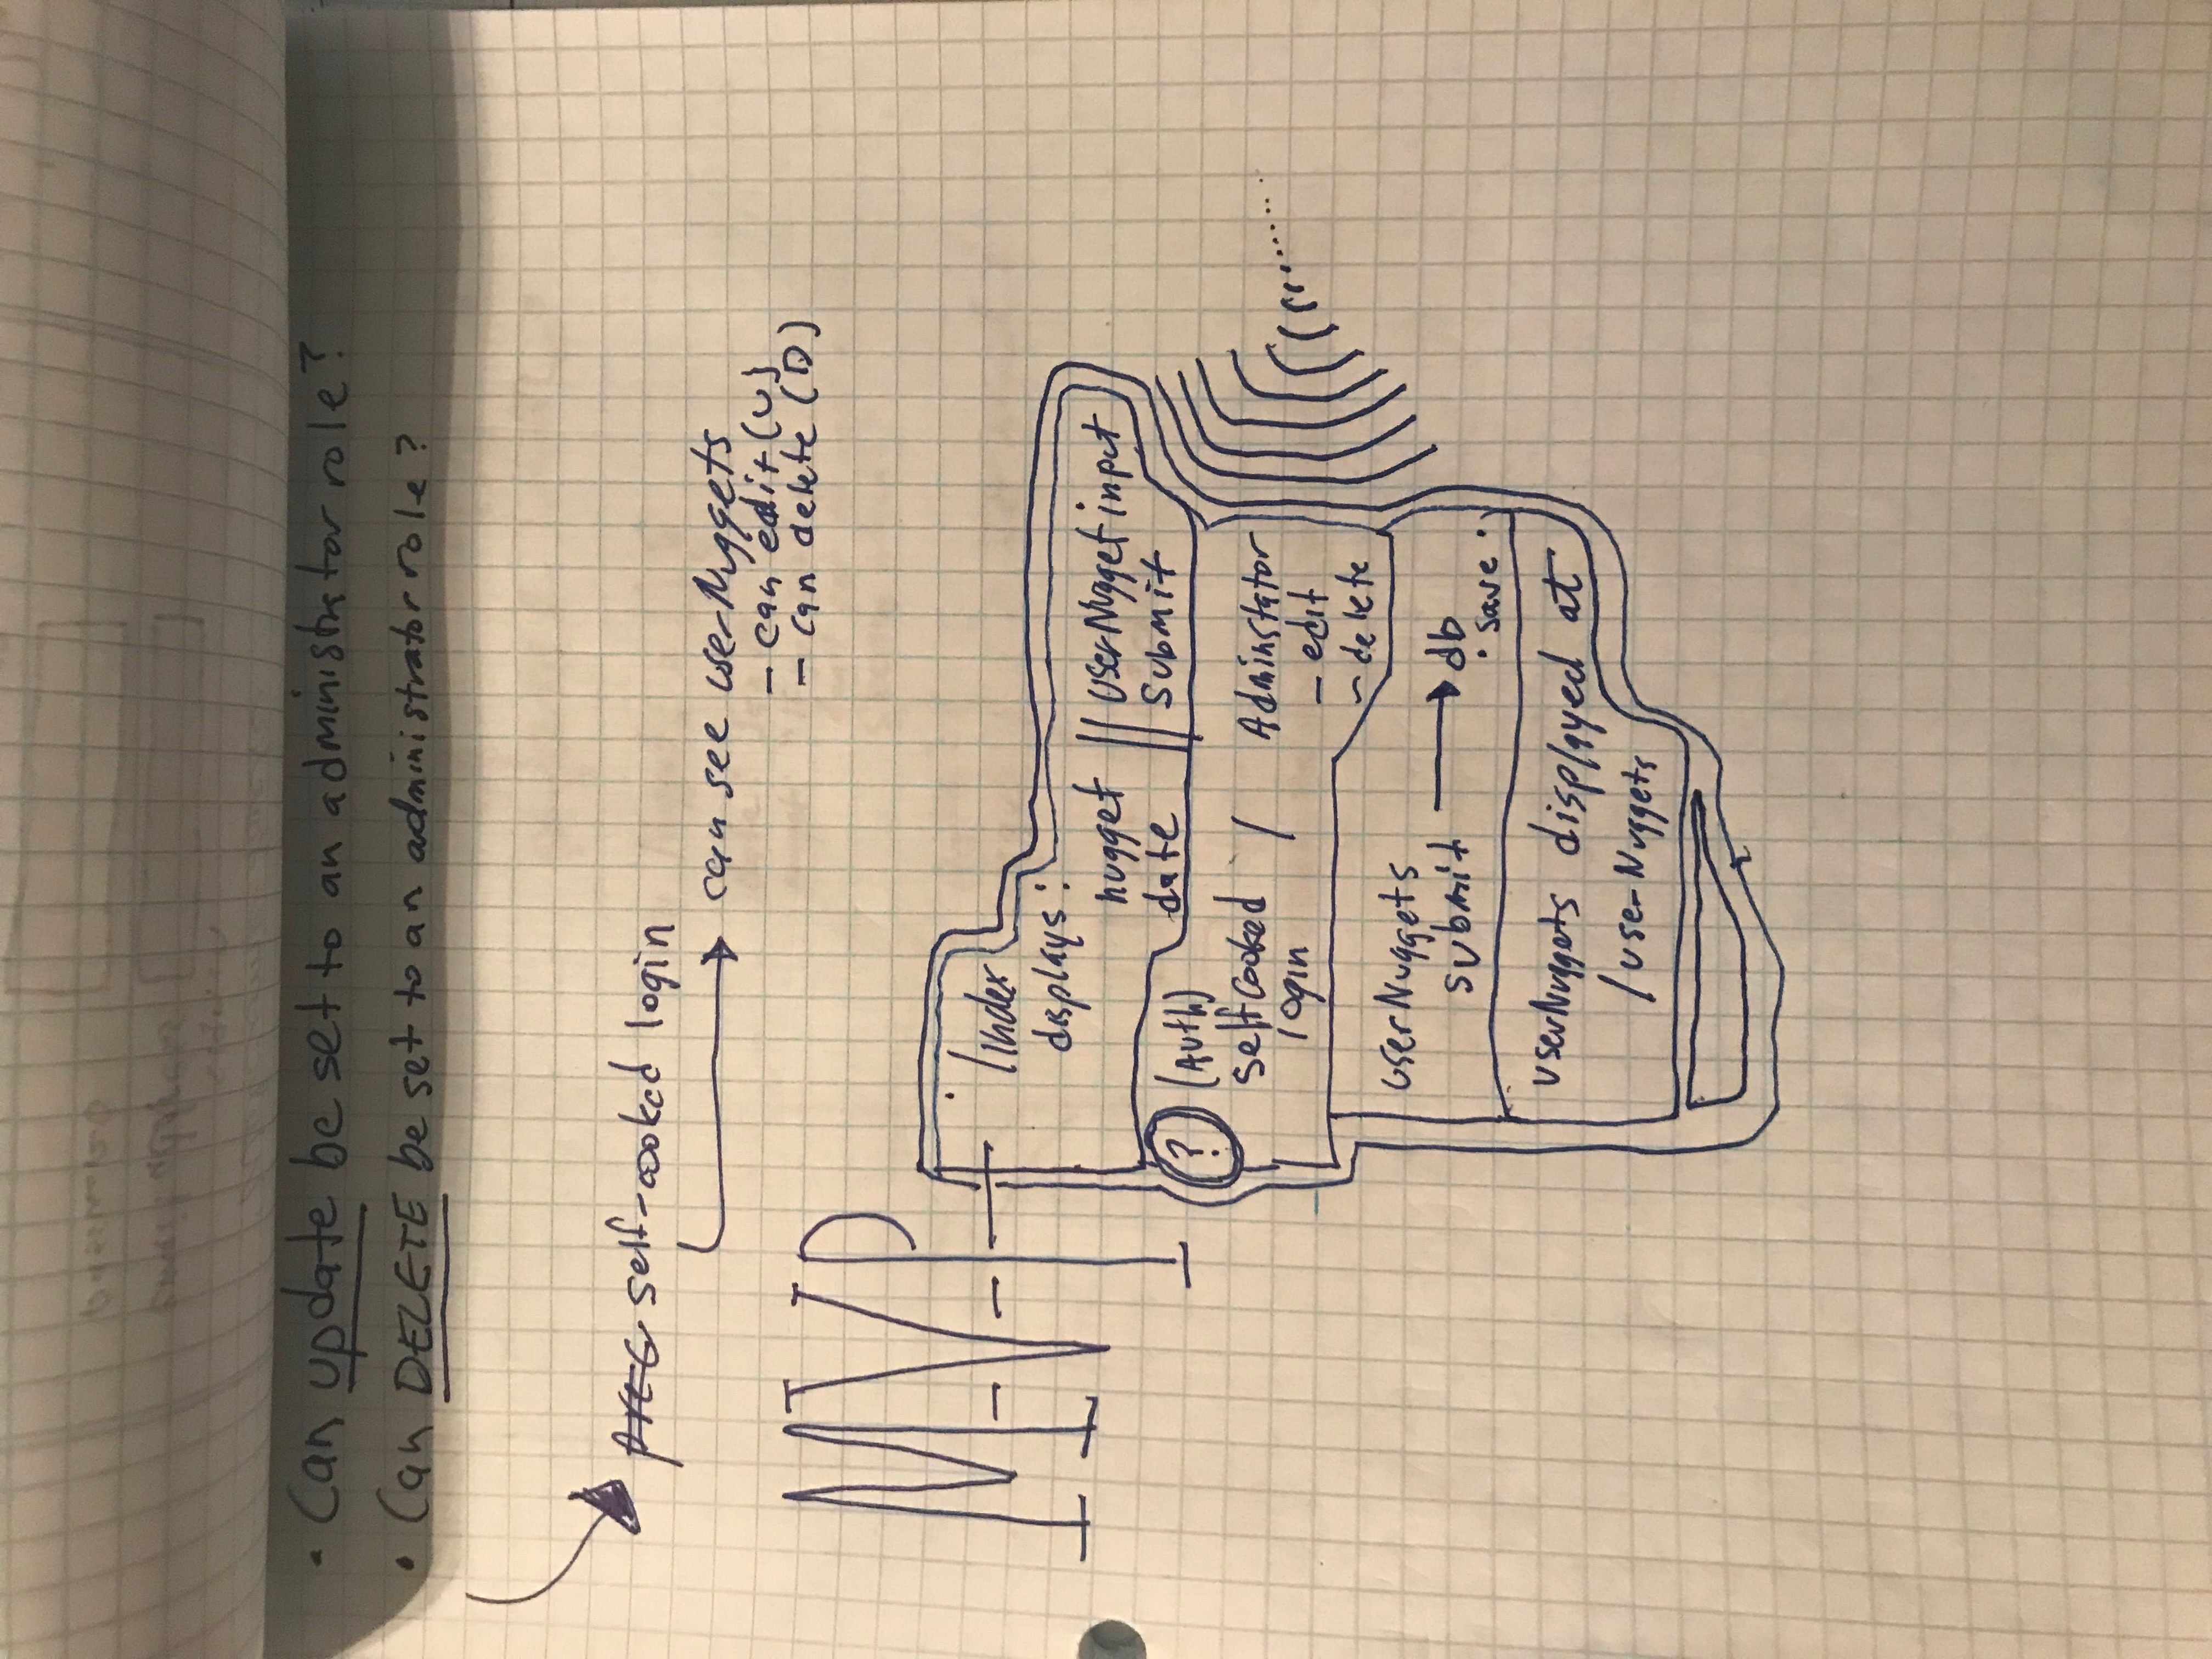 • Can update be set to an administrator role?
• Can DELETE be set to an administrator role?
self-cooked login
can see userNuggets
- can edit (U)
- can delete (D)
M-V-P-
/index
displays:
nugget || userNugget input
date || submit
? (Auth)
self cooked / Adminstator
login - edit
- delete
userNuggets
submit → db
• save •
userNuggets displayed at
/userNuggets